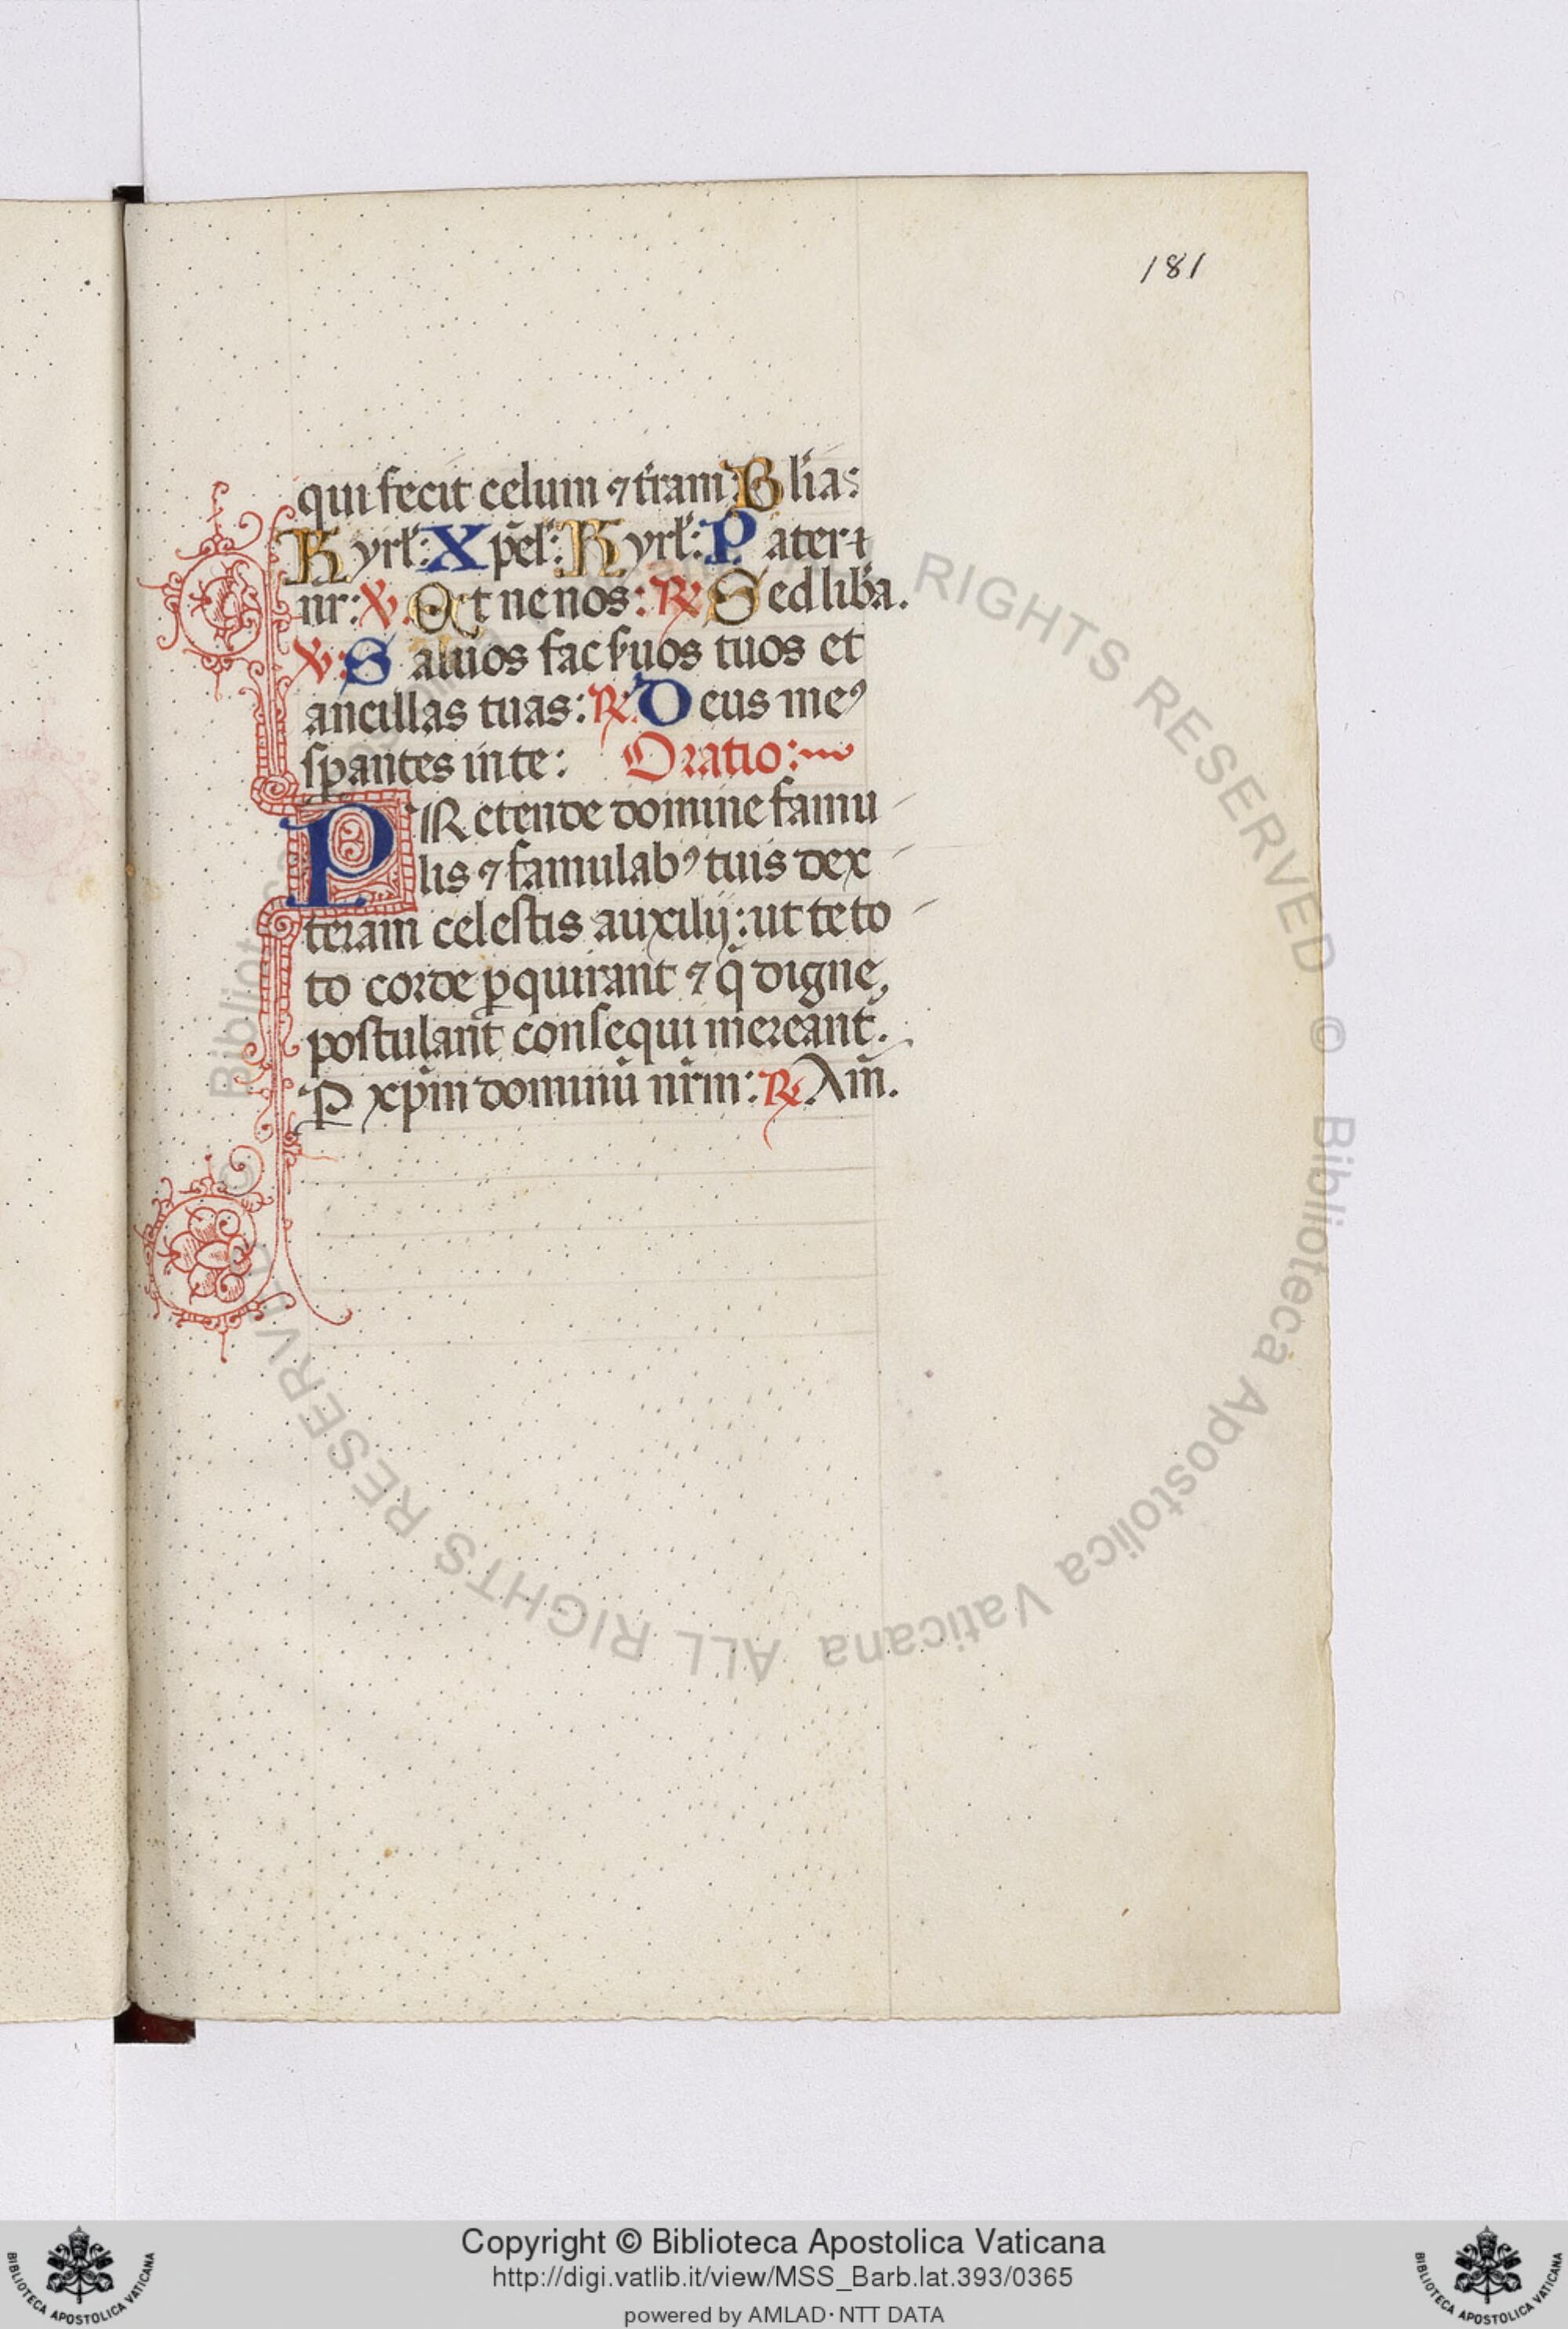 181
qui fecit celum ⁊ t'ram: Bl'ias:
Kyrl': Xp̄el': Kyrl': Pater
nr: ℣. Et ne nos: ℟ Sed lib'a.
℣: Saluos fac s'uos tuos et
ancillas tuas: ℟: Deus meꝰ
sꝑantes in te: Oratio:
PRetende domine famu
lis ⁊ famulabꝰ tuis dex
teram celestis auxilij: ut te to
to corde ꝑquirant ⁊ q̄ digne
postulant consequi mereant̄.
P xp̄m dominū nr̄m: ℟ Am̄.
Biblioteca Apostolica Vaticana ALL RIGHTS RESERVED ©
Copyright © Biblioteca Apostolica Vaticana
http://digi.vatlib.it/view/MSS_Barb.lat.393/0365
powered by AMLAD·NTT DATA
BIBLIOTECA APOSTOLICA VATICANA
BIBLIOTECA APOSTOLICA VATICANA